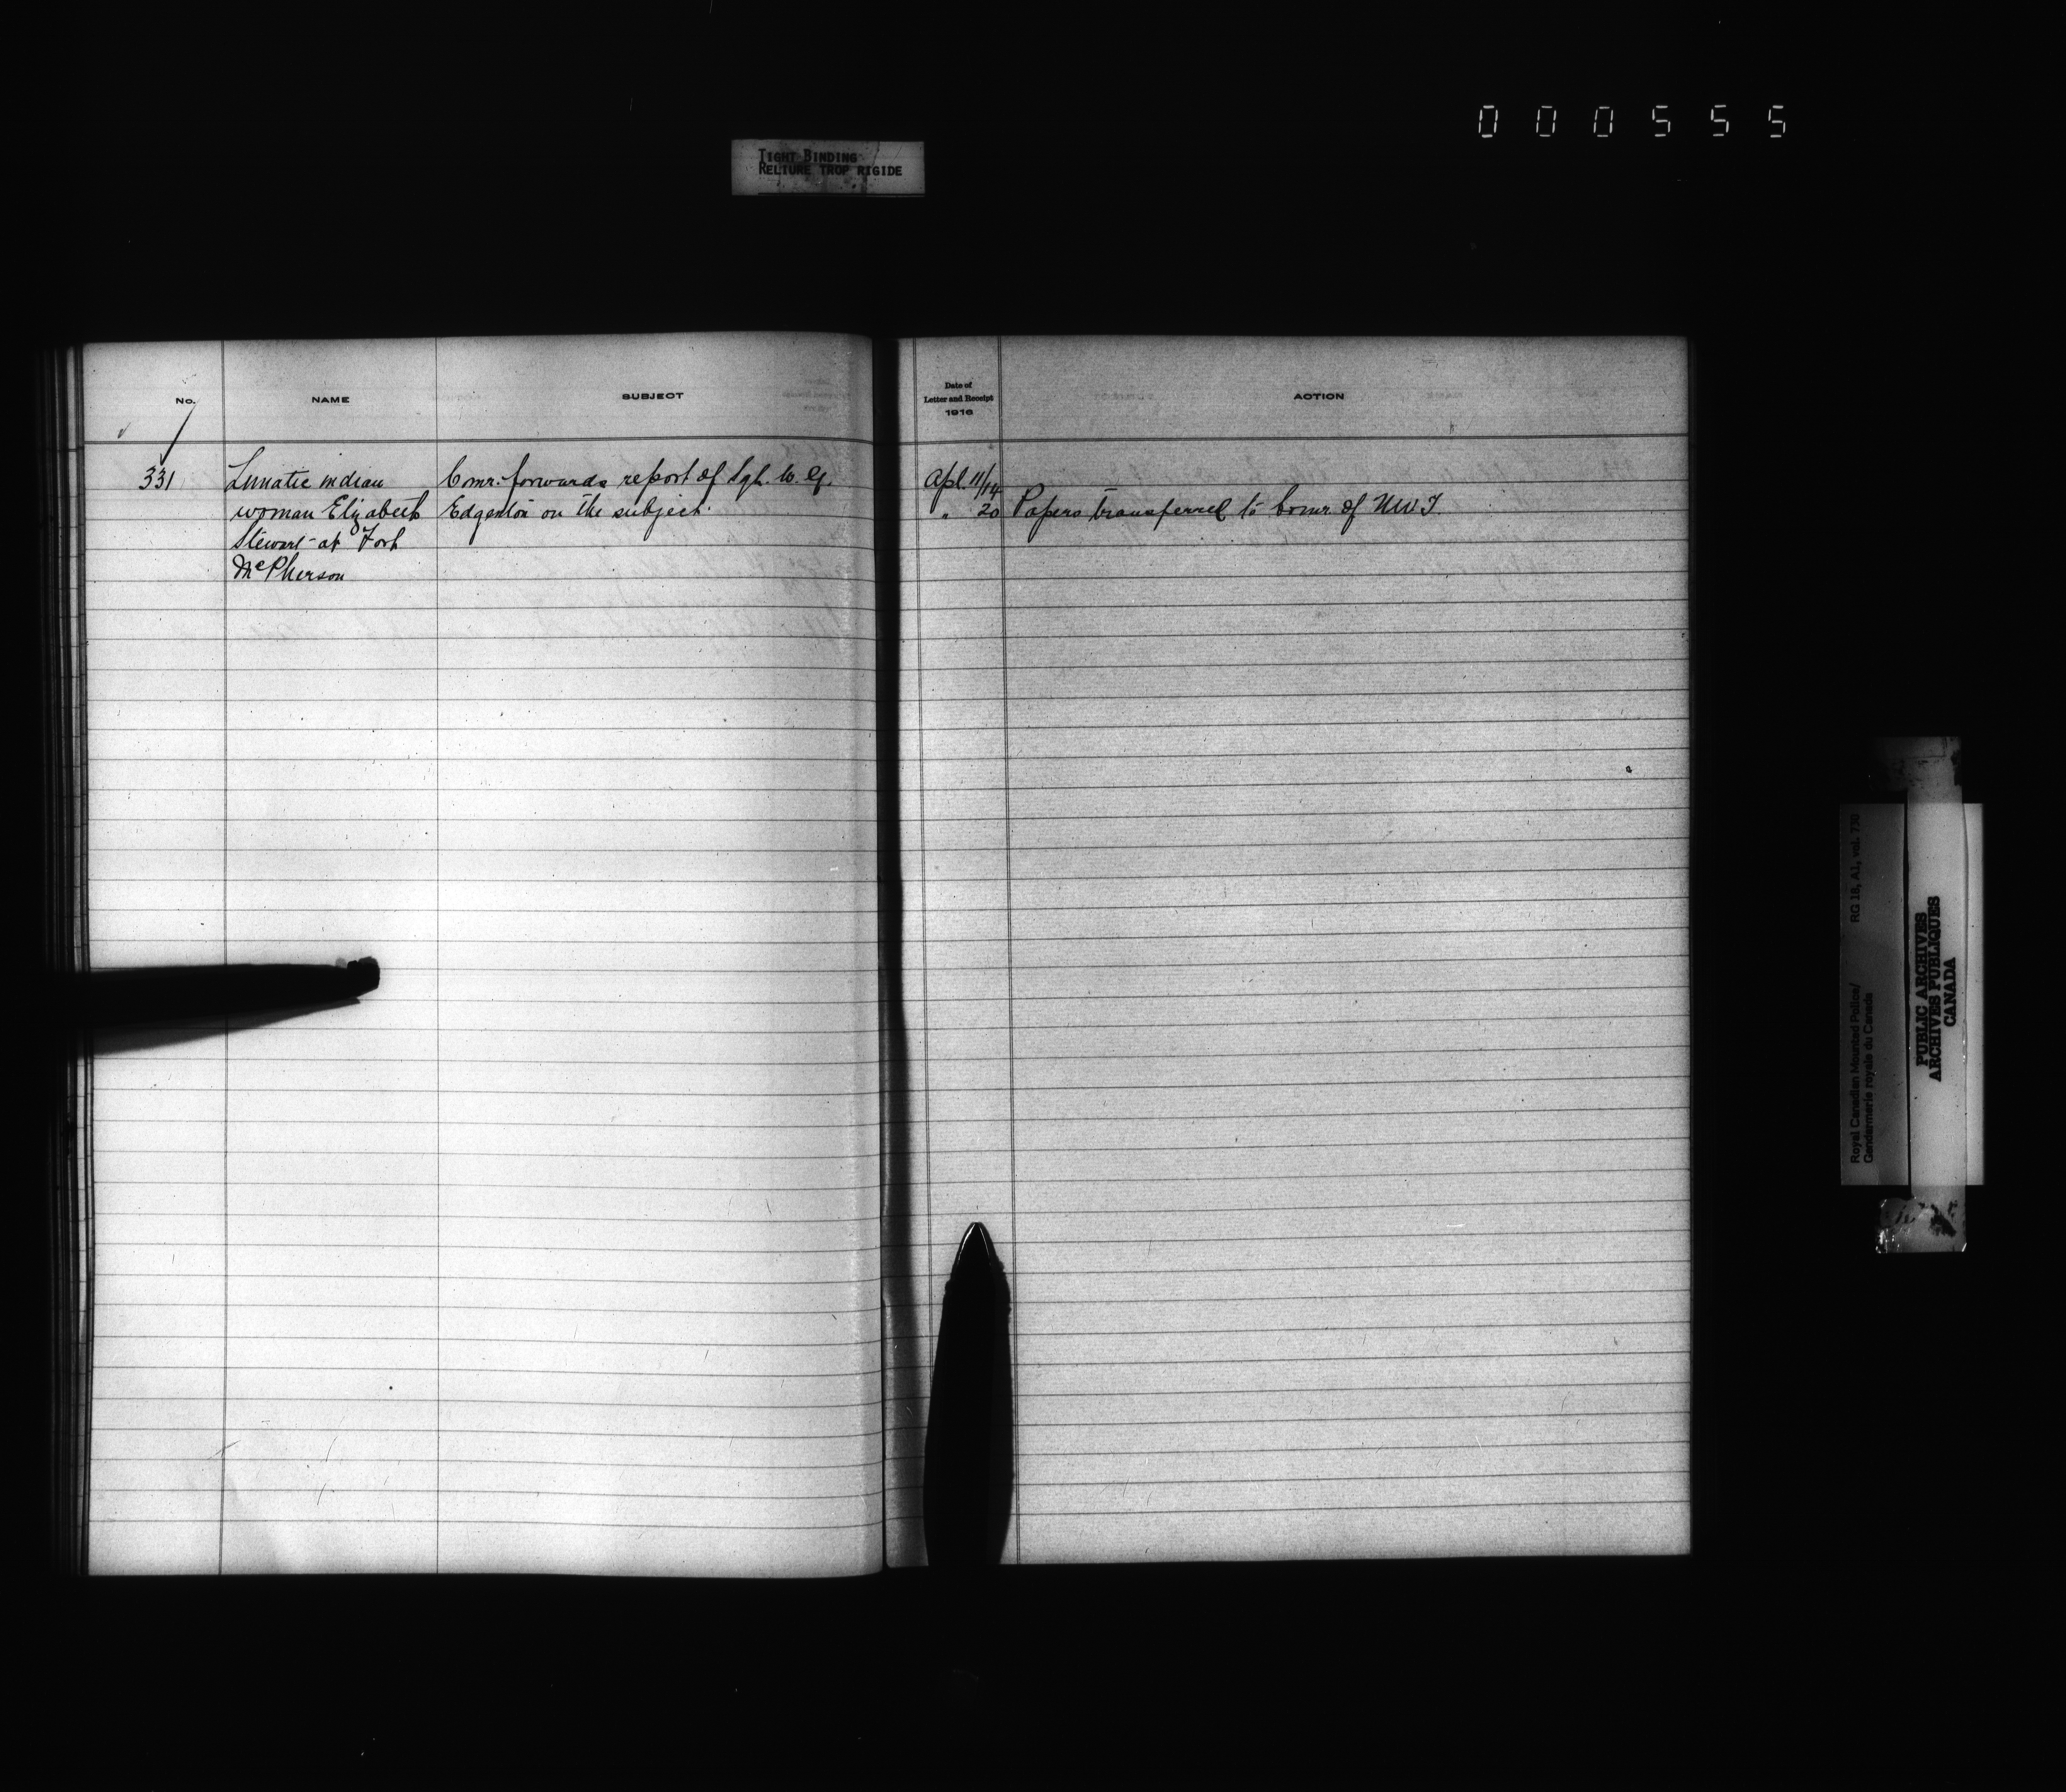 000555
TIGHT BINDING
RELIURE TROP RIGIDE
No.
NAME
SUBJECT
Date of
Letter and Receipt
1916
ACTION
331
Lunatic indian
woman Elizabeth
Stewart at Fort
McPherson
Comr. forwards report of Sgt. W. G.
Edgenton on the subject.
Apl. 11/14
" 20
Papers transferred to Comr. of NWT
RG 18, A1, vol. 730
Royal Canadian Mounted Police/
Gendarmerie royale du Canada
PUBLIC ARCHIVES
ARCHIVES PUBLIQUES
CANADA